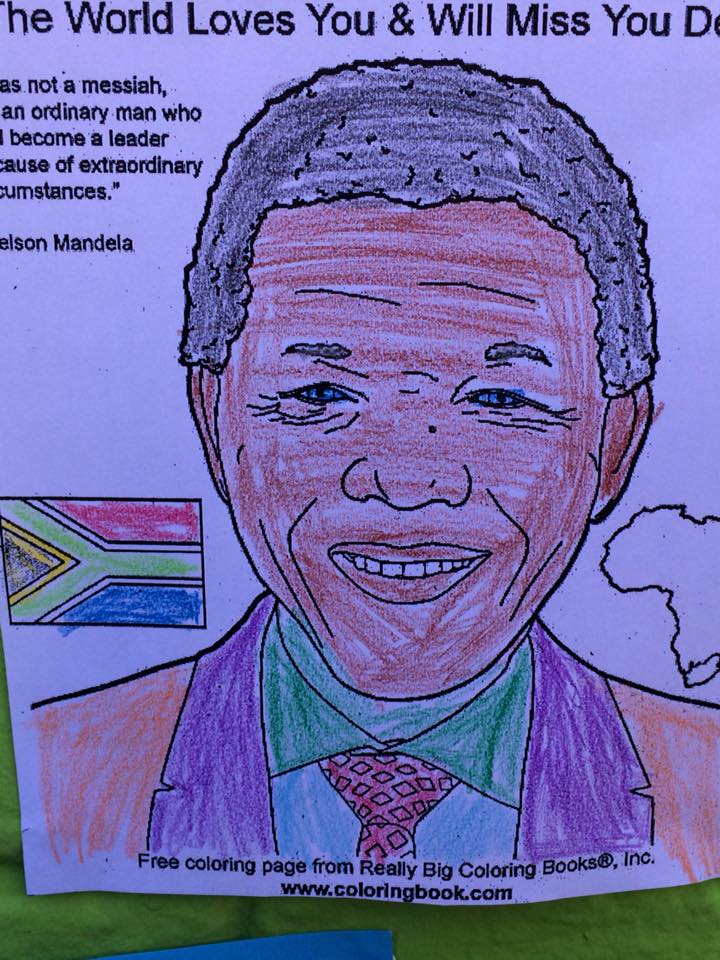 The World Loves You & Will Miss You De
as not a messiah,
an ordinary man who
become a leader
cause of extraordinary
cumstances."
elson Mandela
Free coloring page from Really Big Coloring Books®, Inc.
www.coloringbook.com